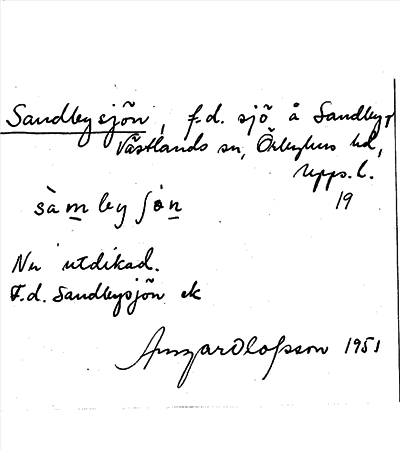 Sandbysjön, f.d. sjö å Sandby,
Västlands sn, Örbyhus hd,
Upps. l.
19
sàmbyʃön
Nu utdikad.
F.d. Sandbysjön ek
Ansgar Olofsson 1951